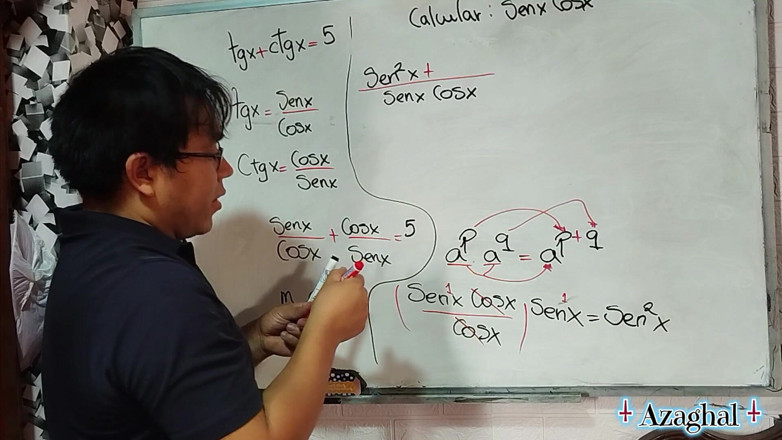 Calcular: Senx Cosx
tgx + ctgx = 5
tgx = Senx / Cosx
Ctgx = Cosx / Senx
Senx / Cosx + Cosx / Senx = 5
m
Sen²x + / Senx Cosx
a^p a^q = a^p+q
(Sen¹x Cosx / Cosx) Sen¹x = Sen²x
Azaghal